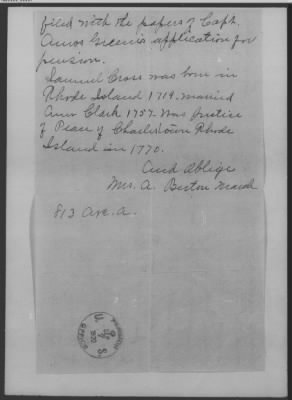 filed with the papers of Capt.
Amos Greene's application for
pension.
Samuel Cross was born in
Rhode Island 1719. married
Ann Clark 1757. Was Justice
of Peace of Charlestown Rhode
Island in 1770.
And Oblige
Mrs. A. Burton
813 Ave. A.
U. S.